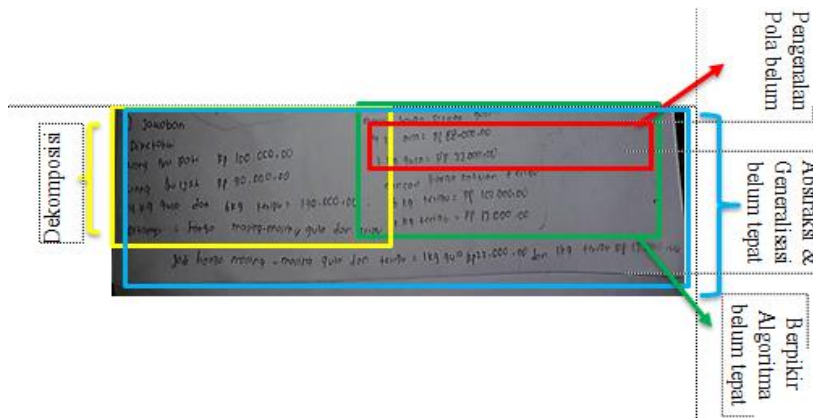 Pengenalan
Pola belum
Abstraksi &
Generalisasi
belum tepat
Berpikir
Algoritma
belum tepat
Dekomposisi
) Jawaban
Diketahui
uang Rp 100.000.00
uang Rp 90.000.00
4 kg gula dan 6kg terigu = 190.000.00
harga masing-masing gula dan
gula = Rp 88.000.00
kg gula = Rp 22.000.00
harga terigu
kg terigu = Rp 102.000.00
kg terigu = Rp 17.000.00
Jadi harga masing-masing gula dan terigu = 1kg gula Rp22.000.00 dan 1kg terigu Rp